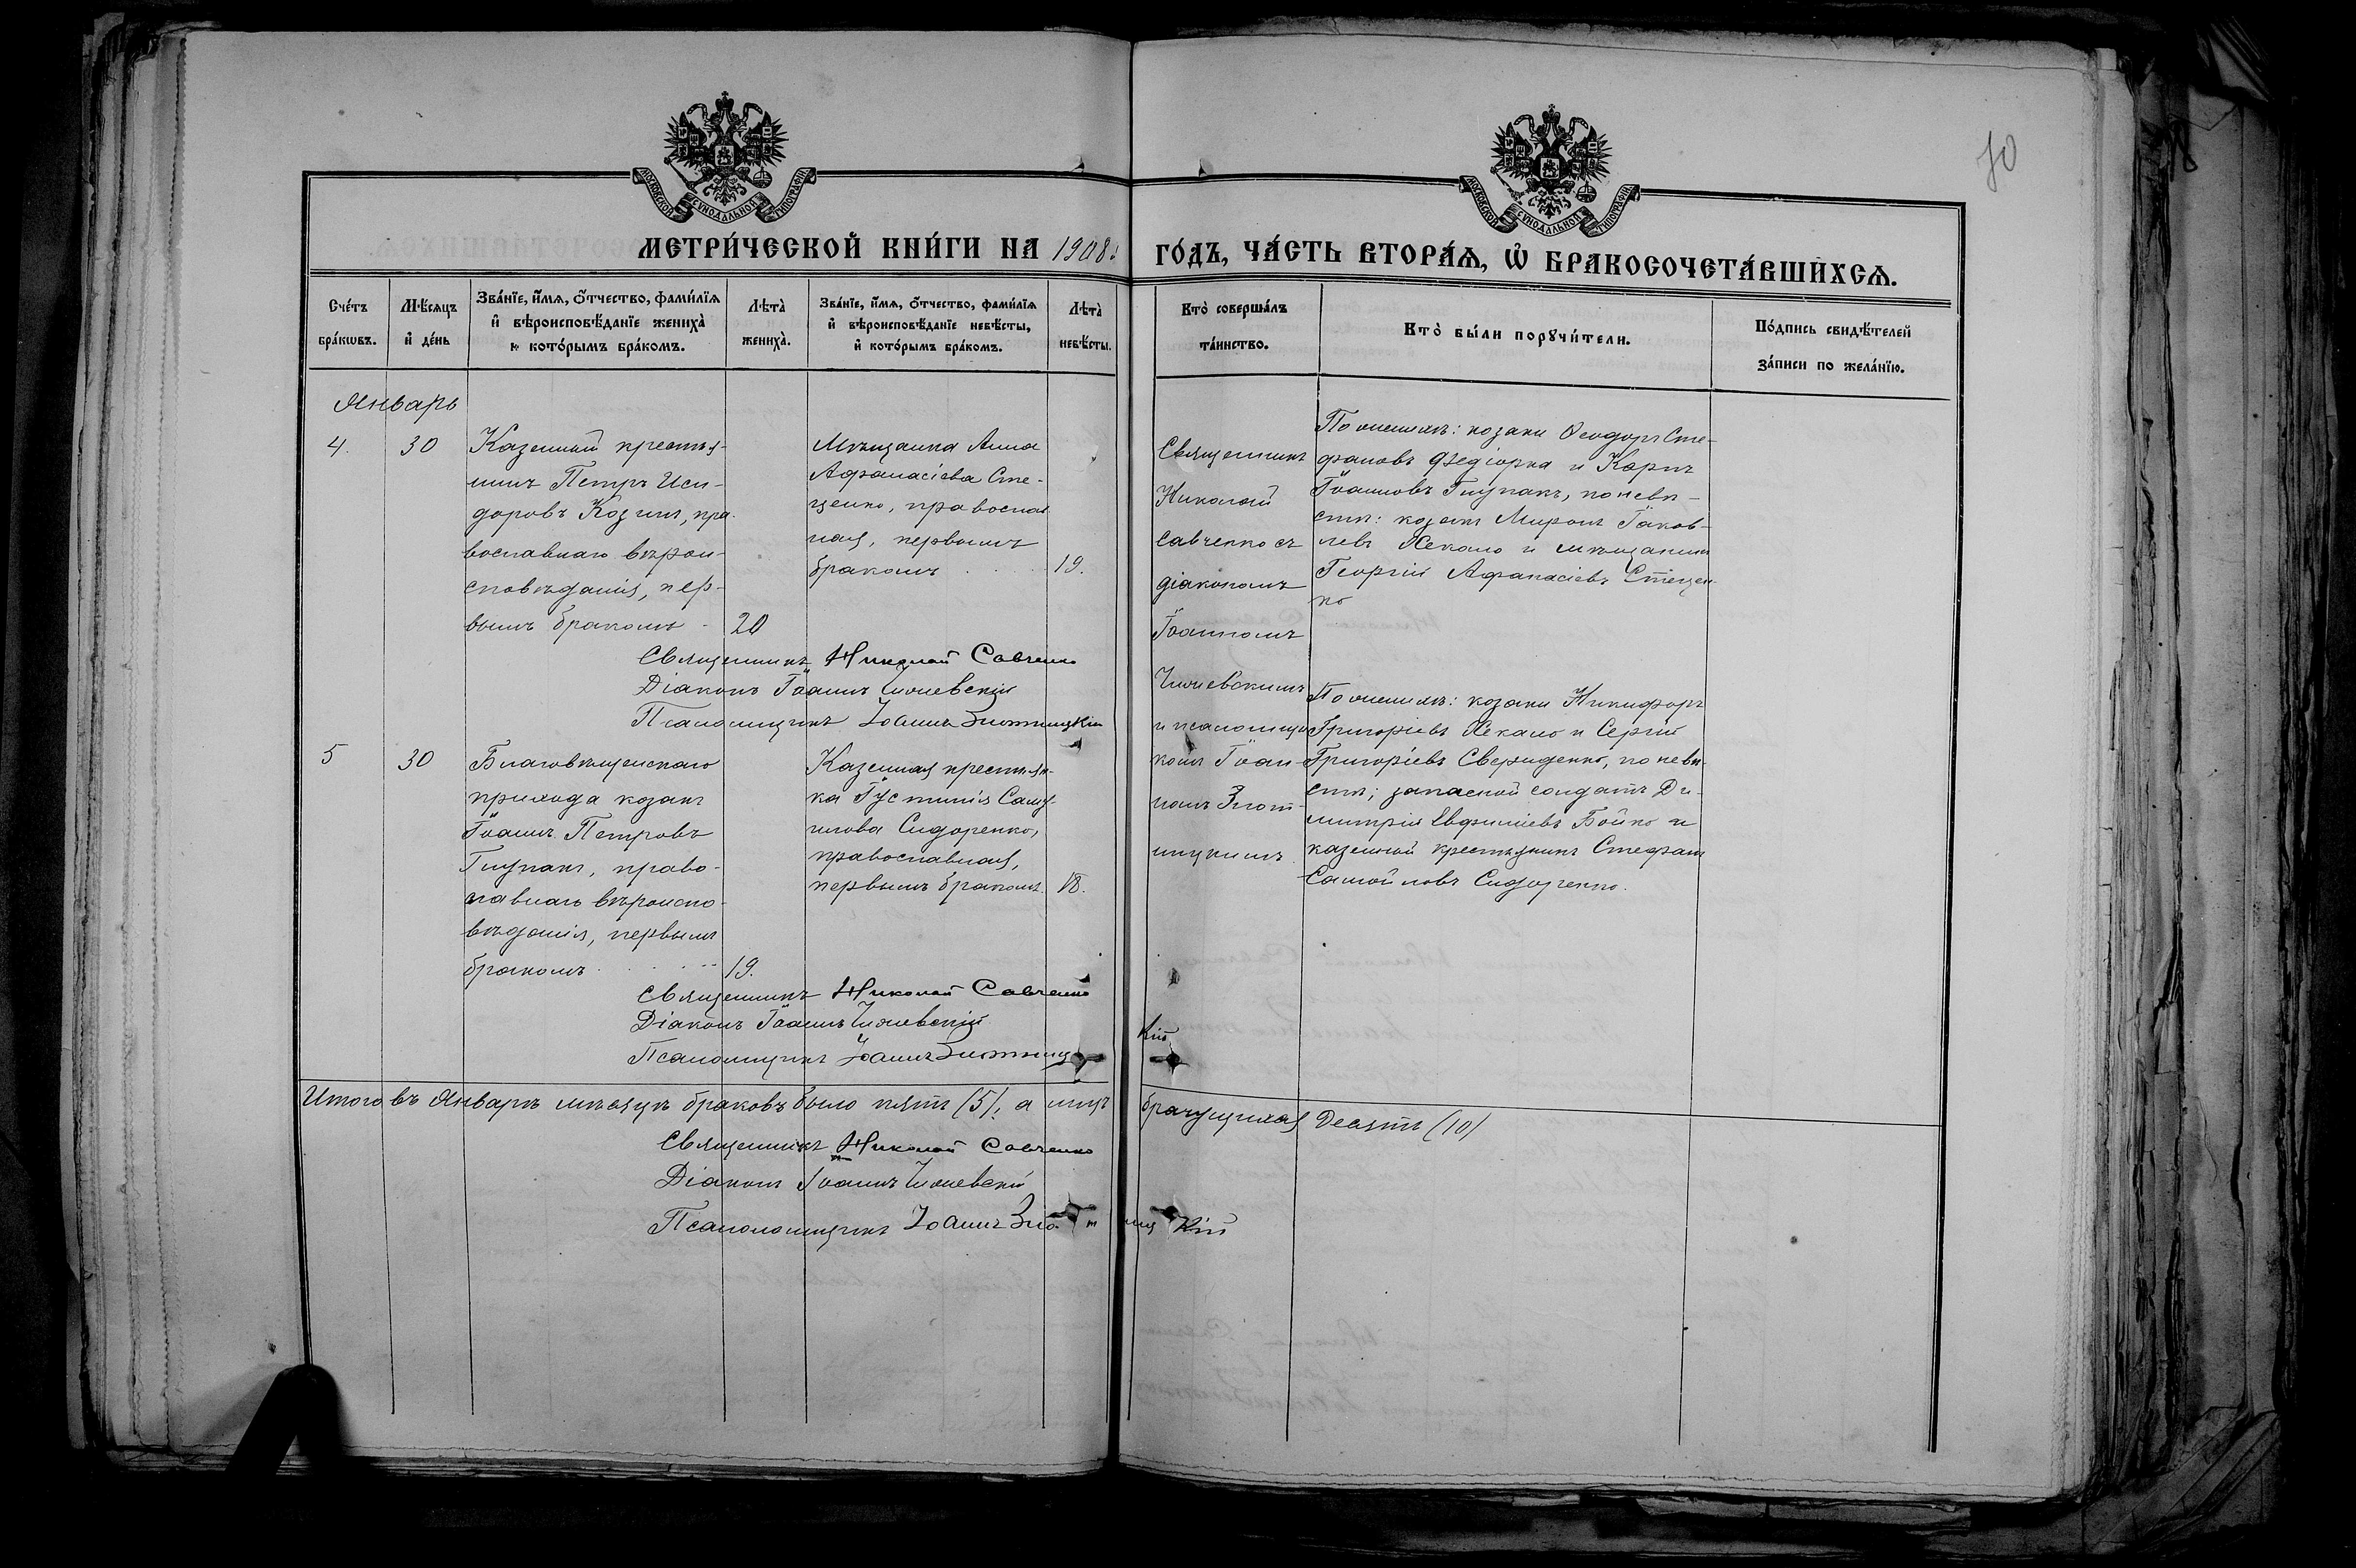 70
МОСКОВСКОЙ СѴНОДАЛЬНОЙ ТИПОГРАФІИ
МОСКОВСКОЙ СѴНОДАЛЬНОЙ ТИПОГРАФІИ
МЕТРИ́ЧЕСКОЙ КНИ́ГИ НА 1908
ГО́ДЪ, ЧА́СТЬ ВТОРА́Ѧ, Ѡ҆ БРАКОСОЧЕТА́ВШИХСѦ.
Сче́тъ
бра́кѡвъ.
Мѣ́сяцъ
и҆ де́нь
Зва́нїе, и҆́мѧ, ѻ҆́тчество, фами́лїѧ
и҆ вѣроисповѣ́данїе жениха̀
и҆ кото́рымъ бра́комъ.
Лѣта̀
жениха̀.
Зва́нїе, и҆́мѧ, ѻ҆́тчество, фами́лїѧ
и҆ вѣроисповѣ́данїе невѣ́сты,
и҆ кото́рымъ бра́комъ.
Лѣта̀
невѣ́сты.
Кто̀ соверша́лъ
та́инство.
Кто̀ бы́ли порꙋчи́тели.
По́дпись свидѣ́телей
за́писи по жела́нїю.
Январь
4.
30
Казенный крестья-
нинъ Петръ Иси-
доровъ Козинъ, пра-
вославнаго вѣрои-
сповѣданія, пер-
вымъ бракомъ
20
Мѣщанка Анна
Афанасіева Сте-
ценко, православ
ная, первымъ
бракомъ
19.
Священникъ
Николай
Савченко съ
діакономъ
Іоанномъ
и псаломщи
комъ Іоан-
номъ Злот-
ницкимъ.
По женихѣ: козаки Ѳеодоръ Сте-
фановъ и Карпъ
Іоанновъ Глупакъ, по невѣ-
стѣ: козакъ Миронъ Іаков-
левъ Жекало и мѣщанинъ
Георгій Афанасіевъ Стецен
ко
Священникъ Николай Савченко
Діаконъ Іоаннъ
Псаломщикъ Іоаннъ Злотницкій
5
30
Благовѣщенскаго
прихода козакъ
Іоаннъ Петровъ
Глупакъ, право-
славнаго вѣроиспо-
вѣданія, первымъ
бракомъ
19.
Казенная крестьян-
ка Іустинія Саму-
илова Сидоренко,
православная,
первымъ бракомъ.
18.
По женихѣ: козаки Никифоръ
Григоріевъ Жекало и Сергій
Григоріевъ Свериденко, по невѣ-
стѣ; запасной солдатъ Ди-
митрій Евфиміевъ Бойко и
казенный крестьянинъ Стефанъ
Самойловъ Сидоренко.
Священникъ Николай Савченко
Діаконъ Іоаннъ
Псаломщикъ Іоаннъ Злотницкій
Итого въ Январѣ мѣсяцѣ браковъ было пять (5), а лицъ брачущихся Десять (10)
Священникъ Николай Савченко
Діаконъ Іоаннъ
Псаломщикъ Іоаннъ Злотницкій